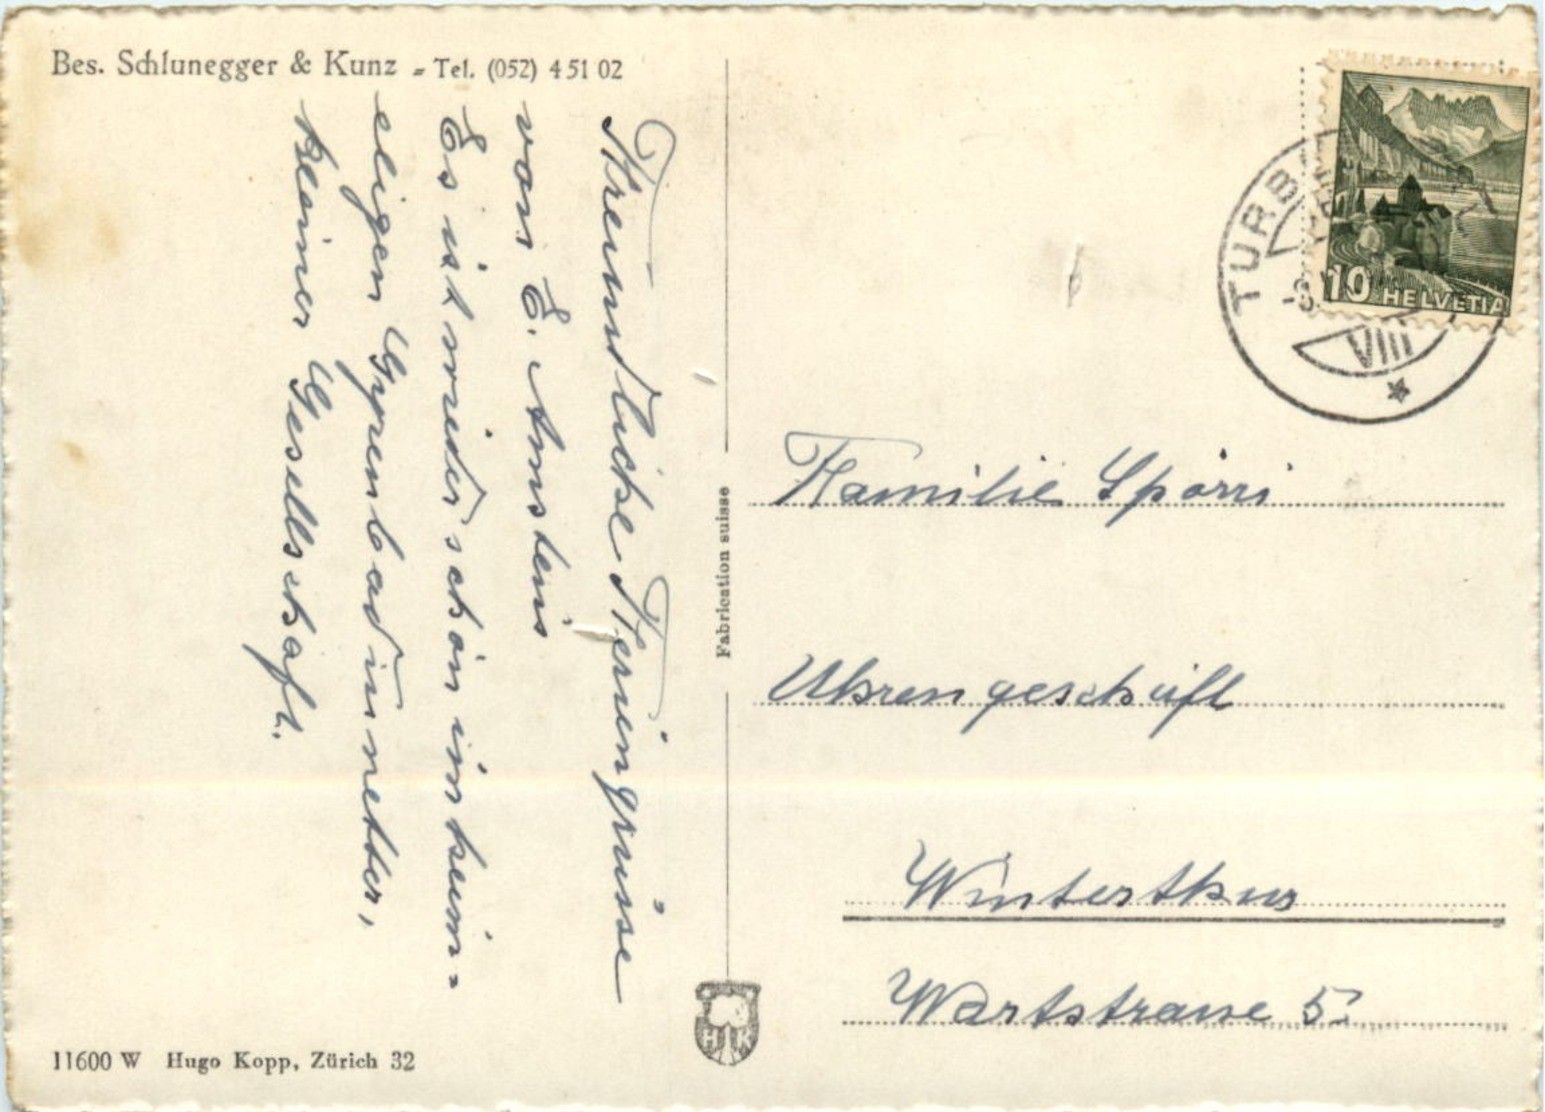 Bes. Schlunegger & Kunz - Tel. (052) 4 51 02
Freundliche Feriengrüsse
von E. Amstein
Es ist wieder schön im heim-
eligen Gyrenbad in netter,
kleiner Gesellschaft.
Fabrication suisse
10 HELVETIA
TURB
VIII
Familie Spörri
Uhrengeschäft
Winterthur
Wartstrasse 5
HK
11600 W Hugo Kopp, Zürich 32